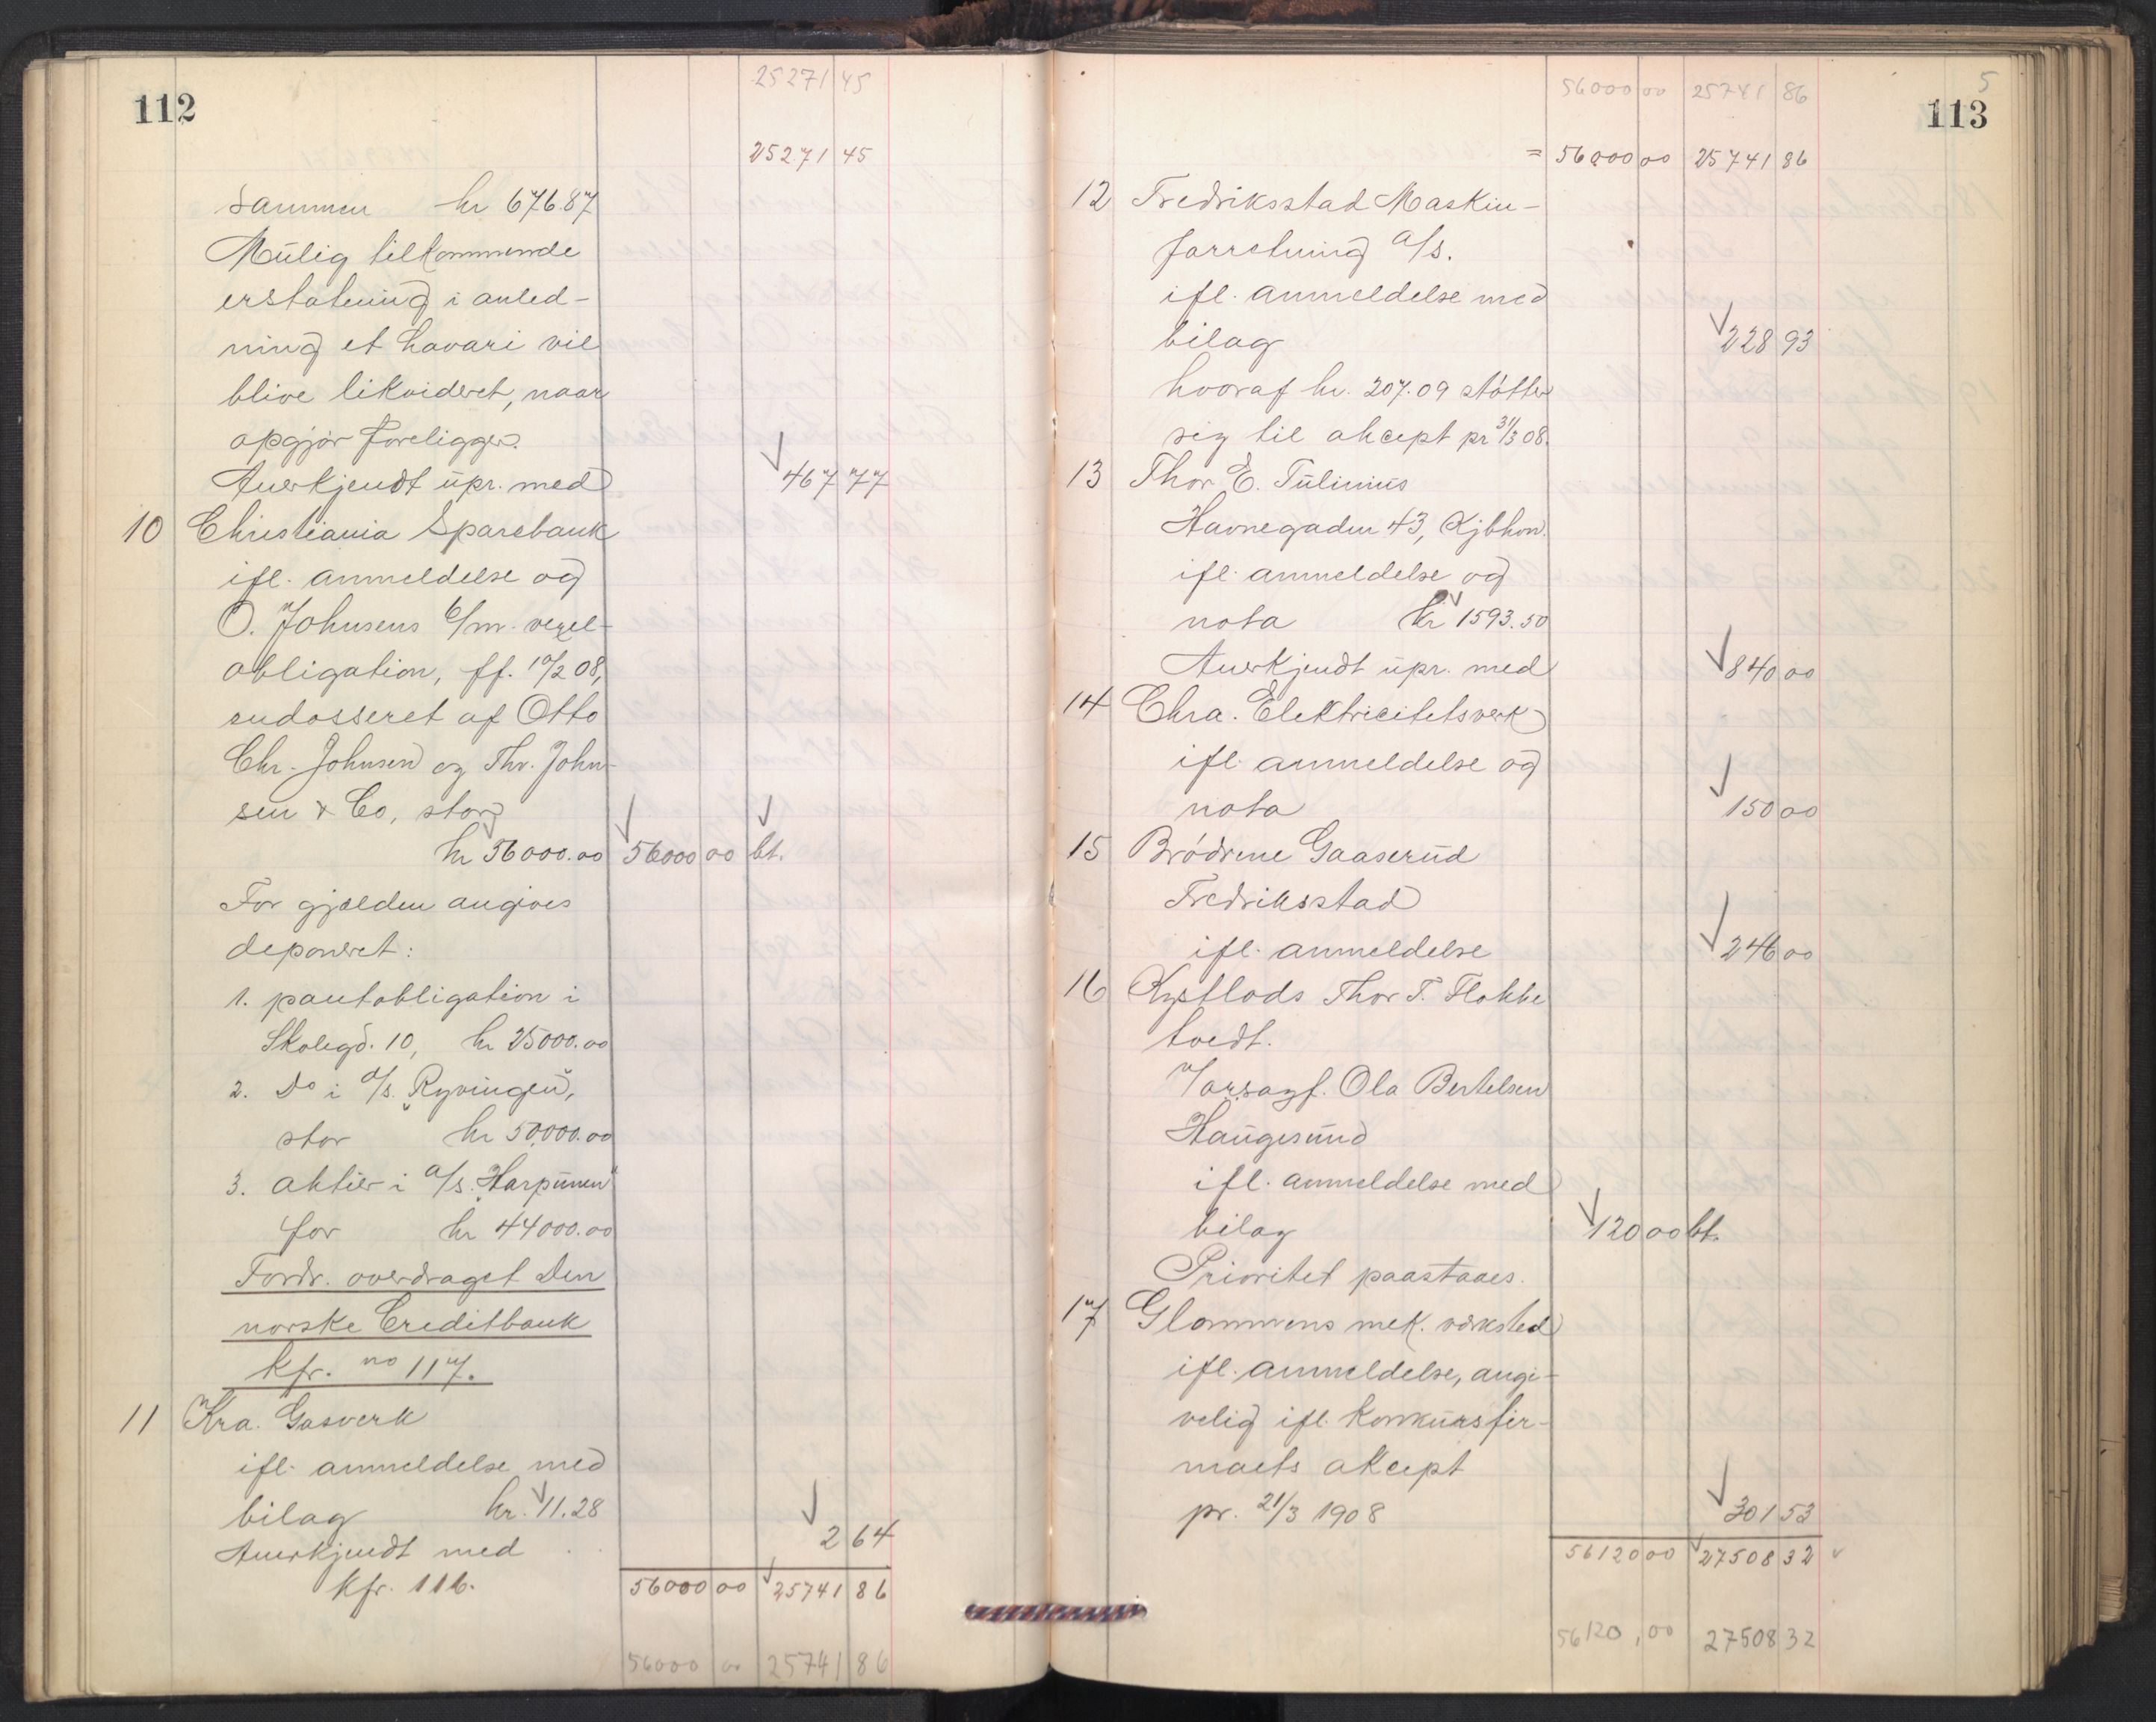 112
25271 45
25271 45
Sammen kr 676.87
Mülig tilkommende
erstatning i anled-
ning et havari vil
blive likvideret, naar
opgjör foreligger.
Anerkjendt üpr. med 467 77
10 Christiania Sparebank
ifl. anmeldelse og
O. Johnsens 6/m. vexel-
obligation, ff. 10/2 08,
endosseret af Otto
Chr. Johnsen og Thv. John-
sen & Co, stor
kr 56000.00 56000 00 bt.
For gjælden angives
deponeret:
1. pantobligation i
Skolegd. 10, kr 25000.00
2. Do i a/s. "Ryvingen",
stor kr 50,000.00
3. aktier i a/s. "Harpünen"
for kr 44000.00
Fordr. overdraget Den
norske Creditbank
kfr. no 117.
11 Kra. Gasverk
ifl. anmeldelse med
bilag kr. 11.28
Anerkjendt med 2 64
kfr. 116. 56000 00 25741 86
56000 00 25741 86
5
113
56000 00 25741 86
= 56000 00 25741 86
12 Fredriksstad Maskin-
forretning a/s.
ifl. anmeldelse med
bilag 228 93
hvoraf kr. 207.09 stötter
sig til akcept pr 31/3 08.
13 Thor E. Tülinius
Havnegaden 43, Kjbhvn.
ifl. anmeldelse og
nota kr 1593.50
Anerkjendt üpr. med 840 00
14 Chra. Elektricitetsverk
ifl. anmeldelse og
nota 150 00
15 Brödrene Gaaserüd
Fredriksstad
ifl. anmeldelse 246 00
16 Kystlods Thor T. Flokke
tvedt.
v/orsagf. Ola Bertelsen
Haügesünd
ifl. anmeldelse med
bilag 120 00 bt.
Prioritet paastaaes.
17 Glommens mek. værksted
ifl. anmeldelse, angi-
velig ifl. konkürsfir-
maets akcept
pr. 21/3 1908 301 53
56120 00 27508 32
56120,00 27508 32